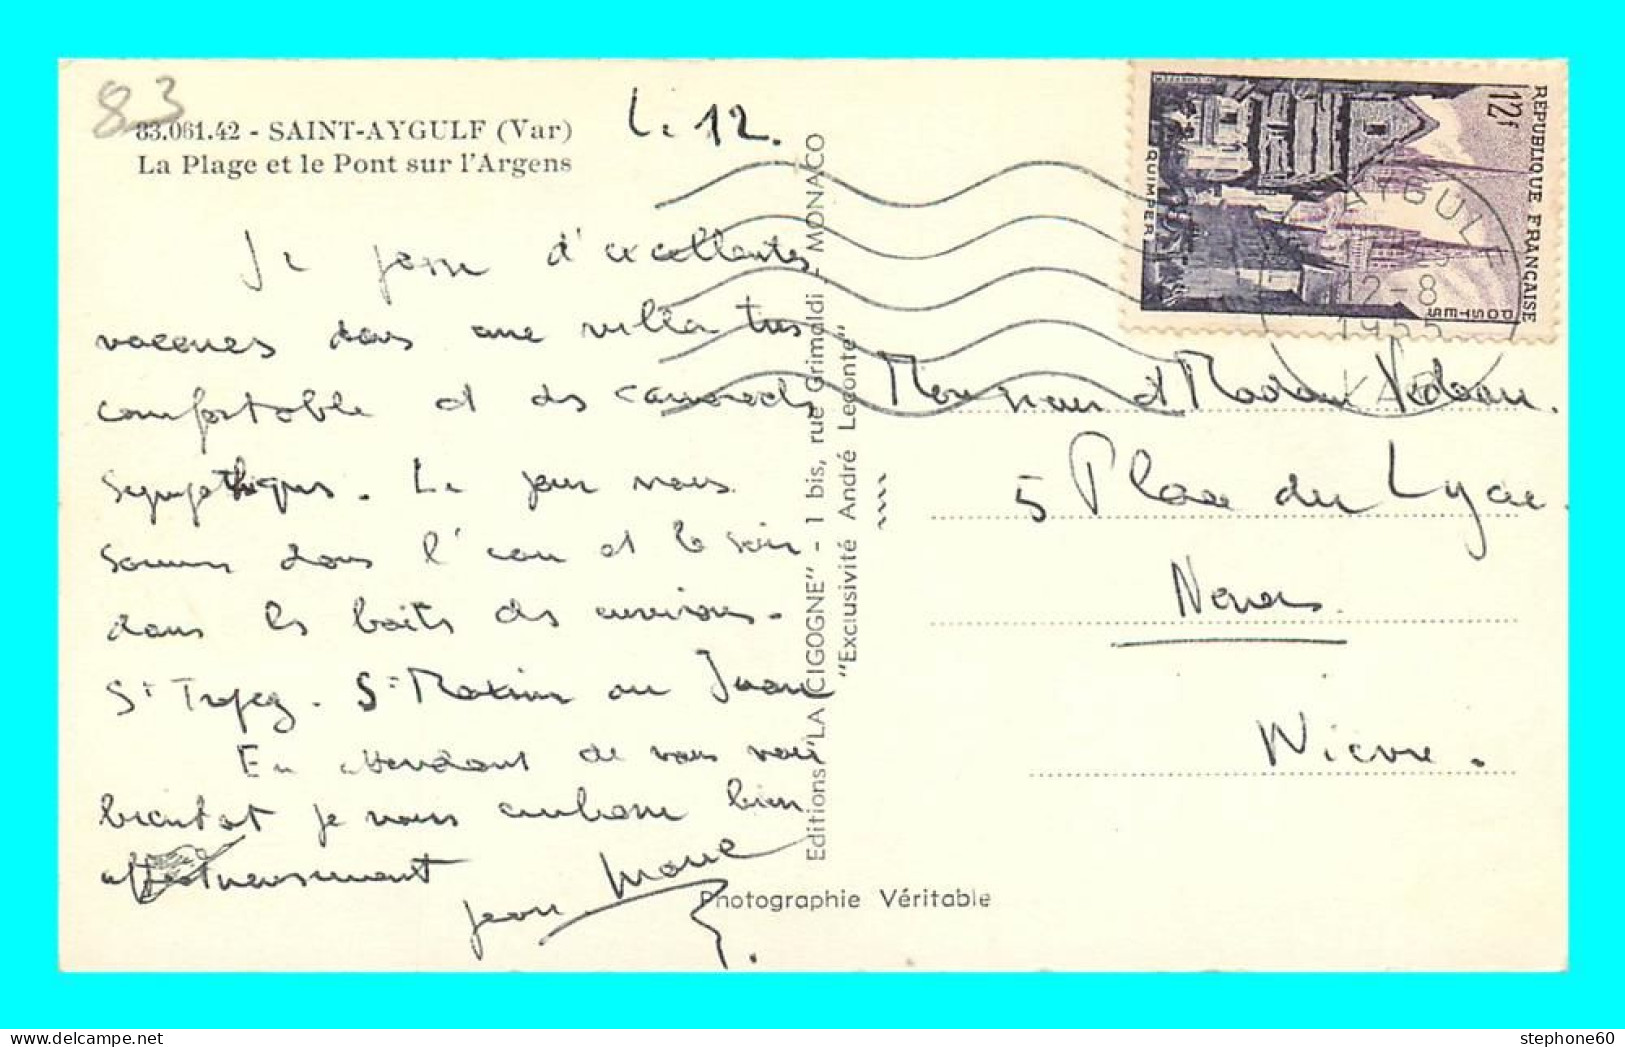 83
83.061.42 - SAINT-AYGULF (Var)
La Plage et le Pont sur l'Argens
Le 12.
Je passe d'excellentes
vacances dans une villa très
confortable et des camarades
sympathiques. Le jour nous
sommes dans l'eau et le soir
dans les boîtes des environs.
St Tropez. St Maxime ou Juan
En attendant de vous voir
bientôt je vous embrasse bien
affectueusement
Jean Marie
Editions "LA CIGOGNE" - 1 bis, rue Grimaldi - MONACO
"Exclusivité André Leconte"
Photographie Véritable
REPUBLIQUE FRANÇAISE
12f
POSTES
QUIMPER
AYGULF
12-8
1955
VAR
Monsieur et Madame
5 Place du Lycée
Nevers
Nièvre.
stephone60